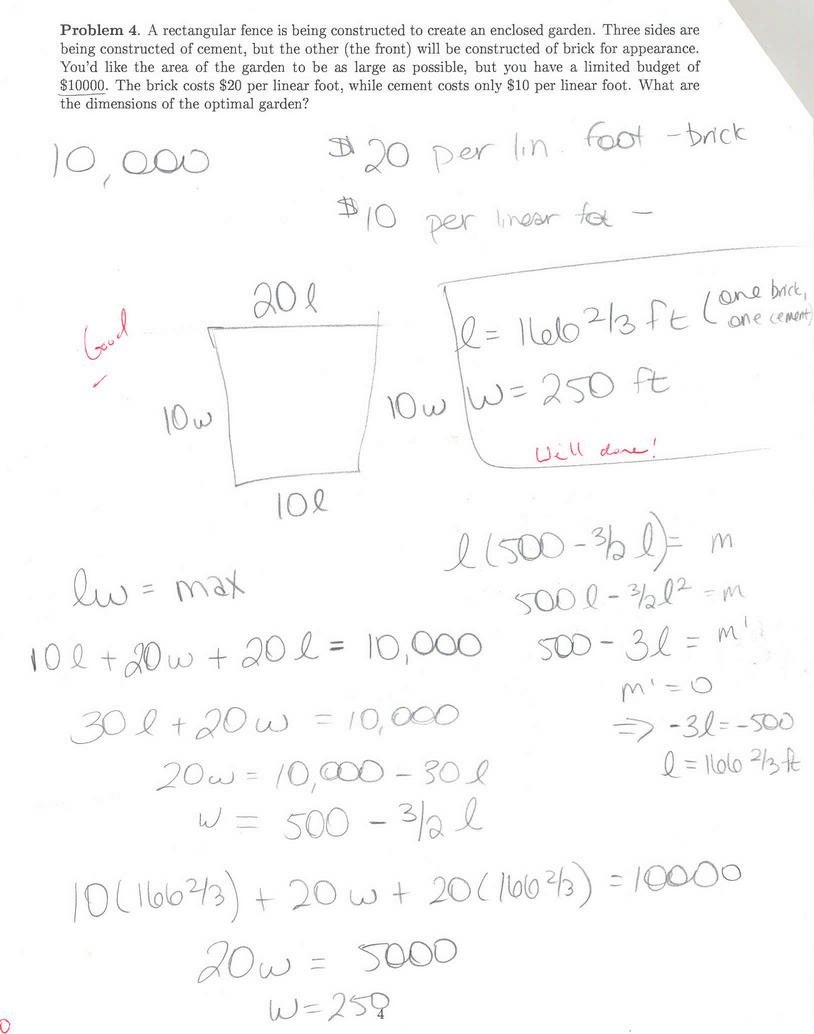 Problem 4. A rectangular fence is being constructed to create an enclosed garden. Three sides are
being constructed of cement, but the other (the front) will be constructed of brick for appearance.
You'd like the area of the garden to be as large as possible, but you have a limited budget of
$10000. The brick costs $20 per linear foot, while cement costs only $10 per linear foot. What are
the dimensions of the optimal garden?
10,000
$20 per lin. foot - brick
$10 per linear fot -
20l
Good
✓
10w
10w
10l
l = 166 2/3 ft (one brick,
one cement)
w = 250 ft
Well done!
lw = max
10l + 20w + 20l = 10,000
30l + 20w = 10,000
20w = 10,000 - 30l
w = 500 - 3/2 l
l(500 - 3/2 l) = m
500l - 3/2 l² = m
500 - 3l = m'
m' = 0
⇒ -3l = -500
l = 166 2/3 ft
10(166 2/3) + 20w + 20(166 2/3) = 10000
20w = 5000
w = 250
4